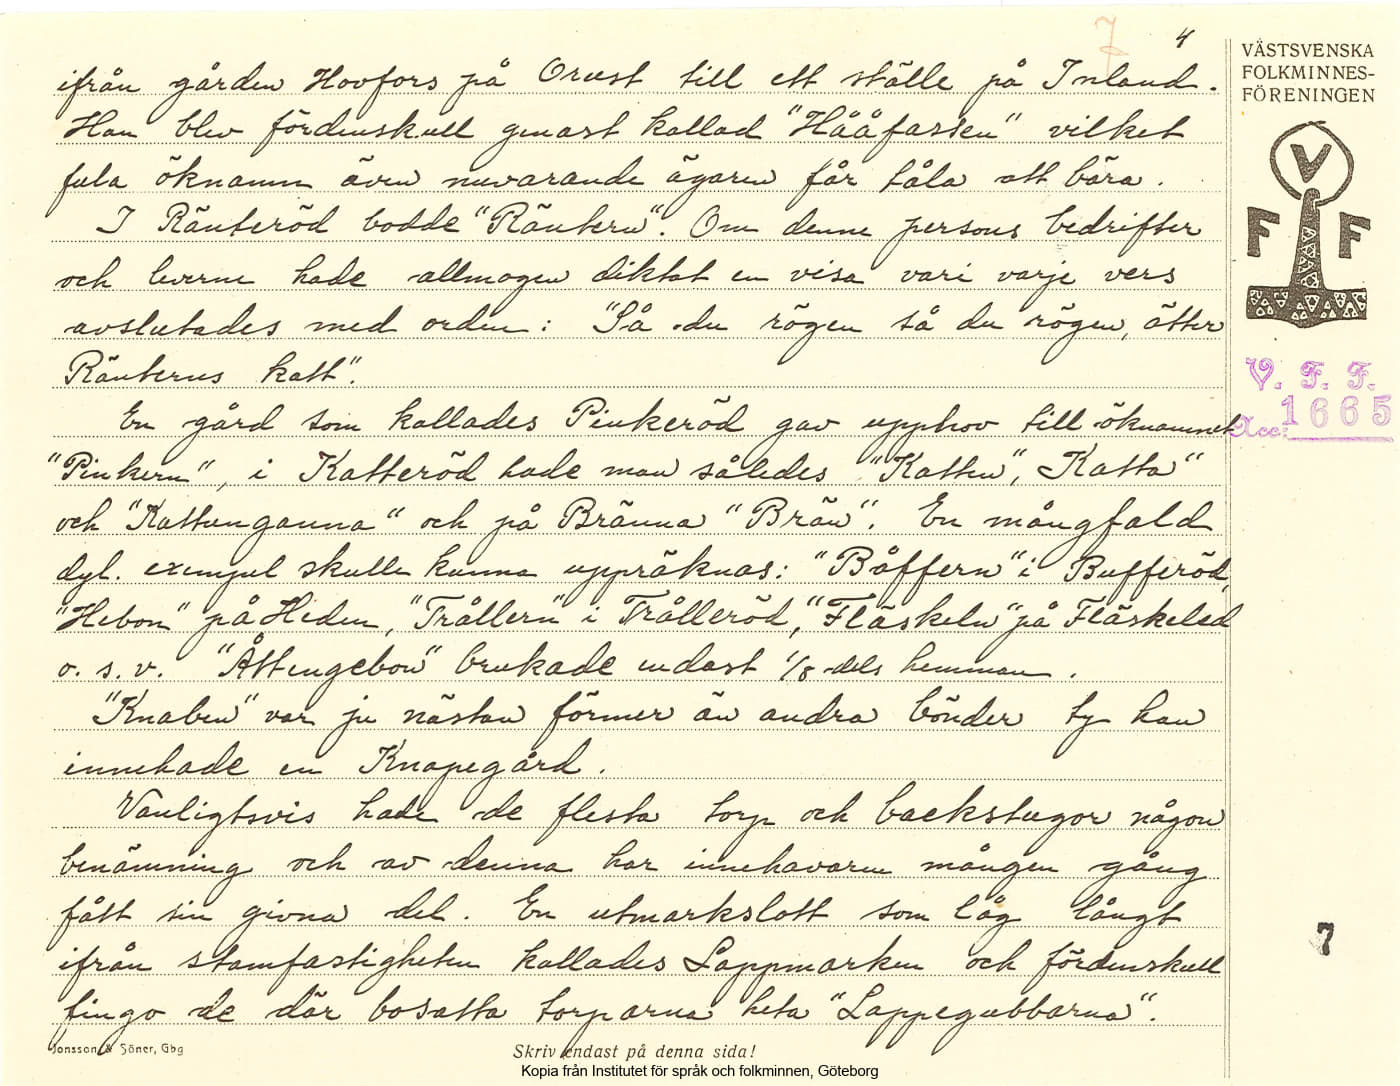 7 4
ifrån gården Hovfors på Orust till ett ställe på Inland.
Han blev fördenskull genast kallad "Hååfassen" vilket
fula öknamn även nuvarande ägaren får tåla att bära.
I Ränteröd bodde "Räntern". Om denne persons bedrifter
och leverne hade allmogen diktat en visa vari varje vers
avslutades med orden: "Så du rögen så du rögen, ätter
Ränterns katt".
En gård som kallades Pinkeröd gav upphov till öknamnet
"Pinkern", i Katteröd hade man således "Katten", Katta"
och "Kattungauna" och på Bränna "Brän". En mångfald
dyl. exempel skulle kunna uppräknas: "Båffern" i Bufferöd,
"Hebon" på Heden, "Trållern" i Trålleröd, "Fläskeln" på Fläskelsd
o.s.v. "Åttengebon" brukade endast 1/8-dels hemman.
"Knaben" var ju nästan förmer än andra bönder ty han
innehade en Knapegård.
Vanligtsvis hade de flesta torp och backstugor någon
benämning och av denna har innehavaren mången gång
fått sin givna del. En utmarkslott som låg långt
ifrån stamfastigheten kallades Lappmarken och fördenskull
fingo de där bosatta torparna heta "Lappegubbarna".
Jonsson & Söner, Gbg
Skriv endast på denna sida!
Kopia från Institutet för språk och folkminnen, Göteborg
VÄSTSVENSKA
FOLKMINNES-
FÖRENINGEN
V
F F
V. F. F.
Acc: 1665
7